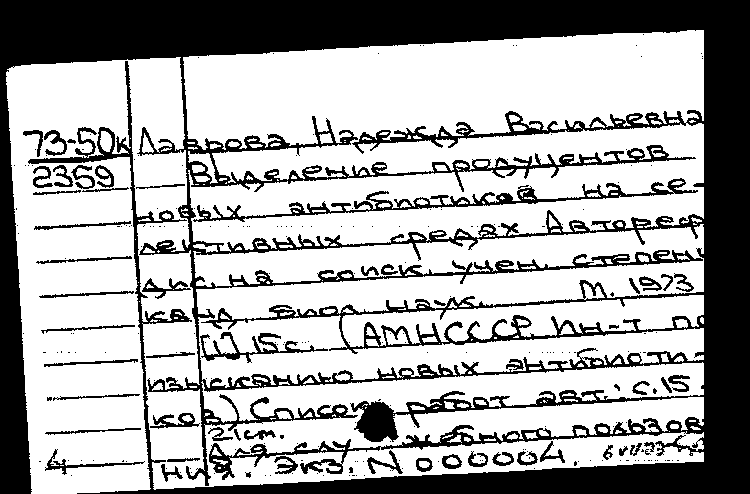 73-50к Лаврова, Надежда Васильевна
2359 Выделение продуцентов
новых антибиотиков на се-
лективных средах Автореф
дис. на соиск. учен. степени
канд. биол. наук. М., 1973
[1], 15 с. (АМНСССР. Ин-т по
изысканию новых антибиоти-
ков) Список работ авт.: с. 15.
21 см.
Для служебного пользова
4 ния. Экз. N 000004.